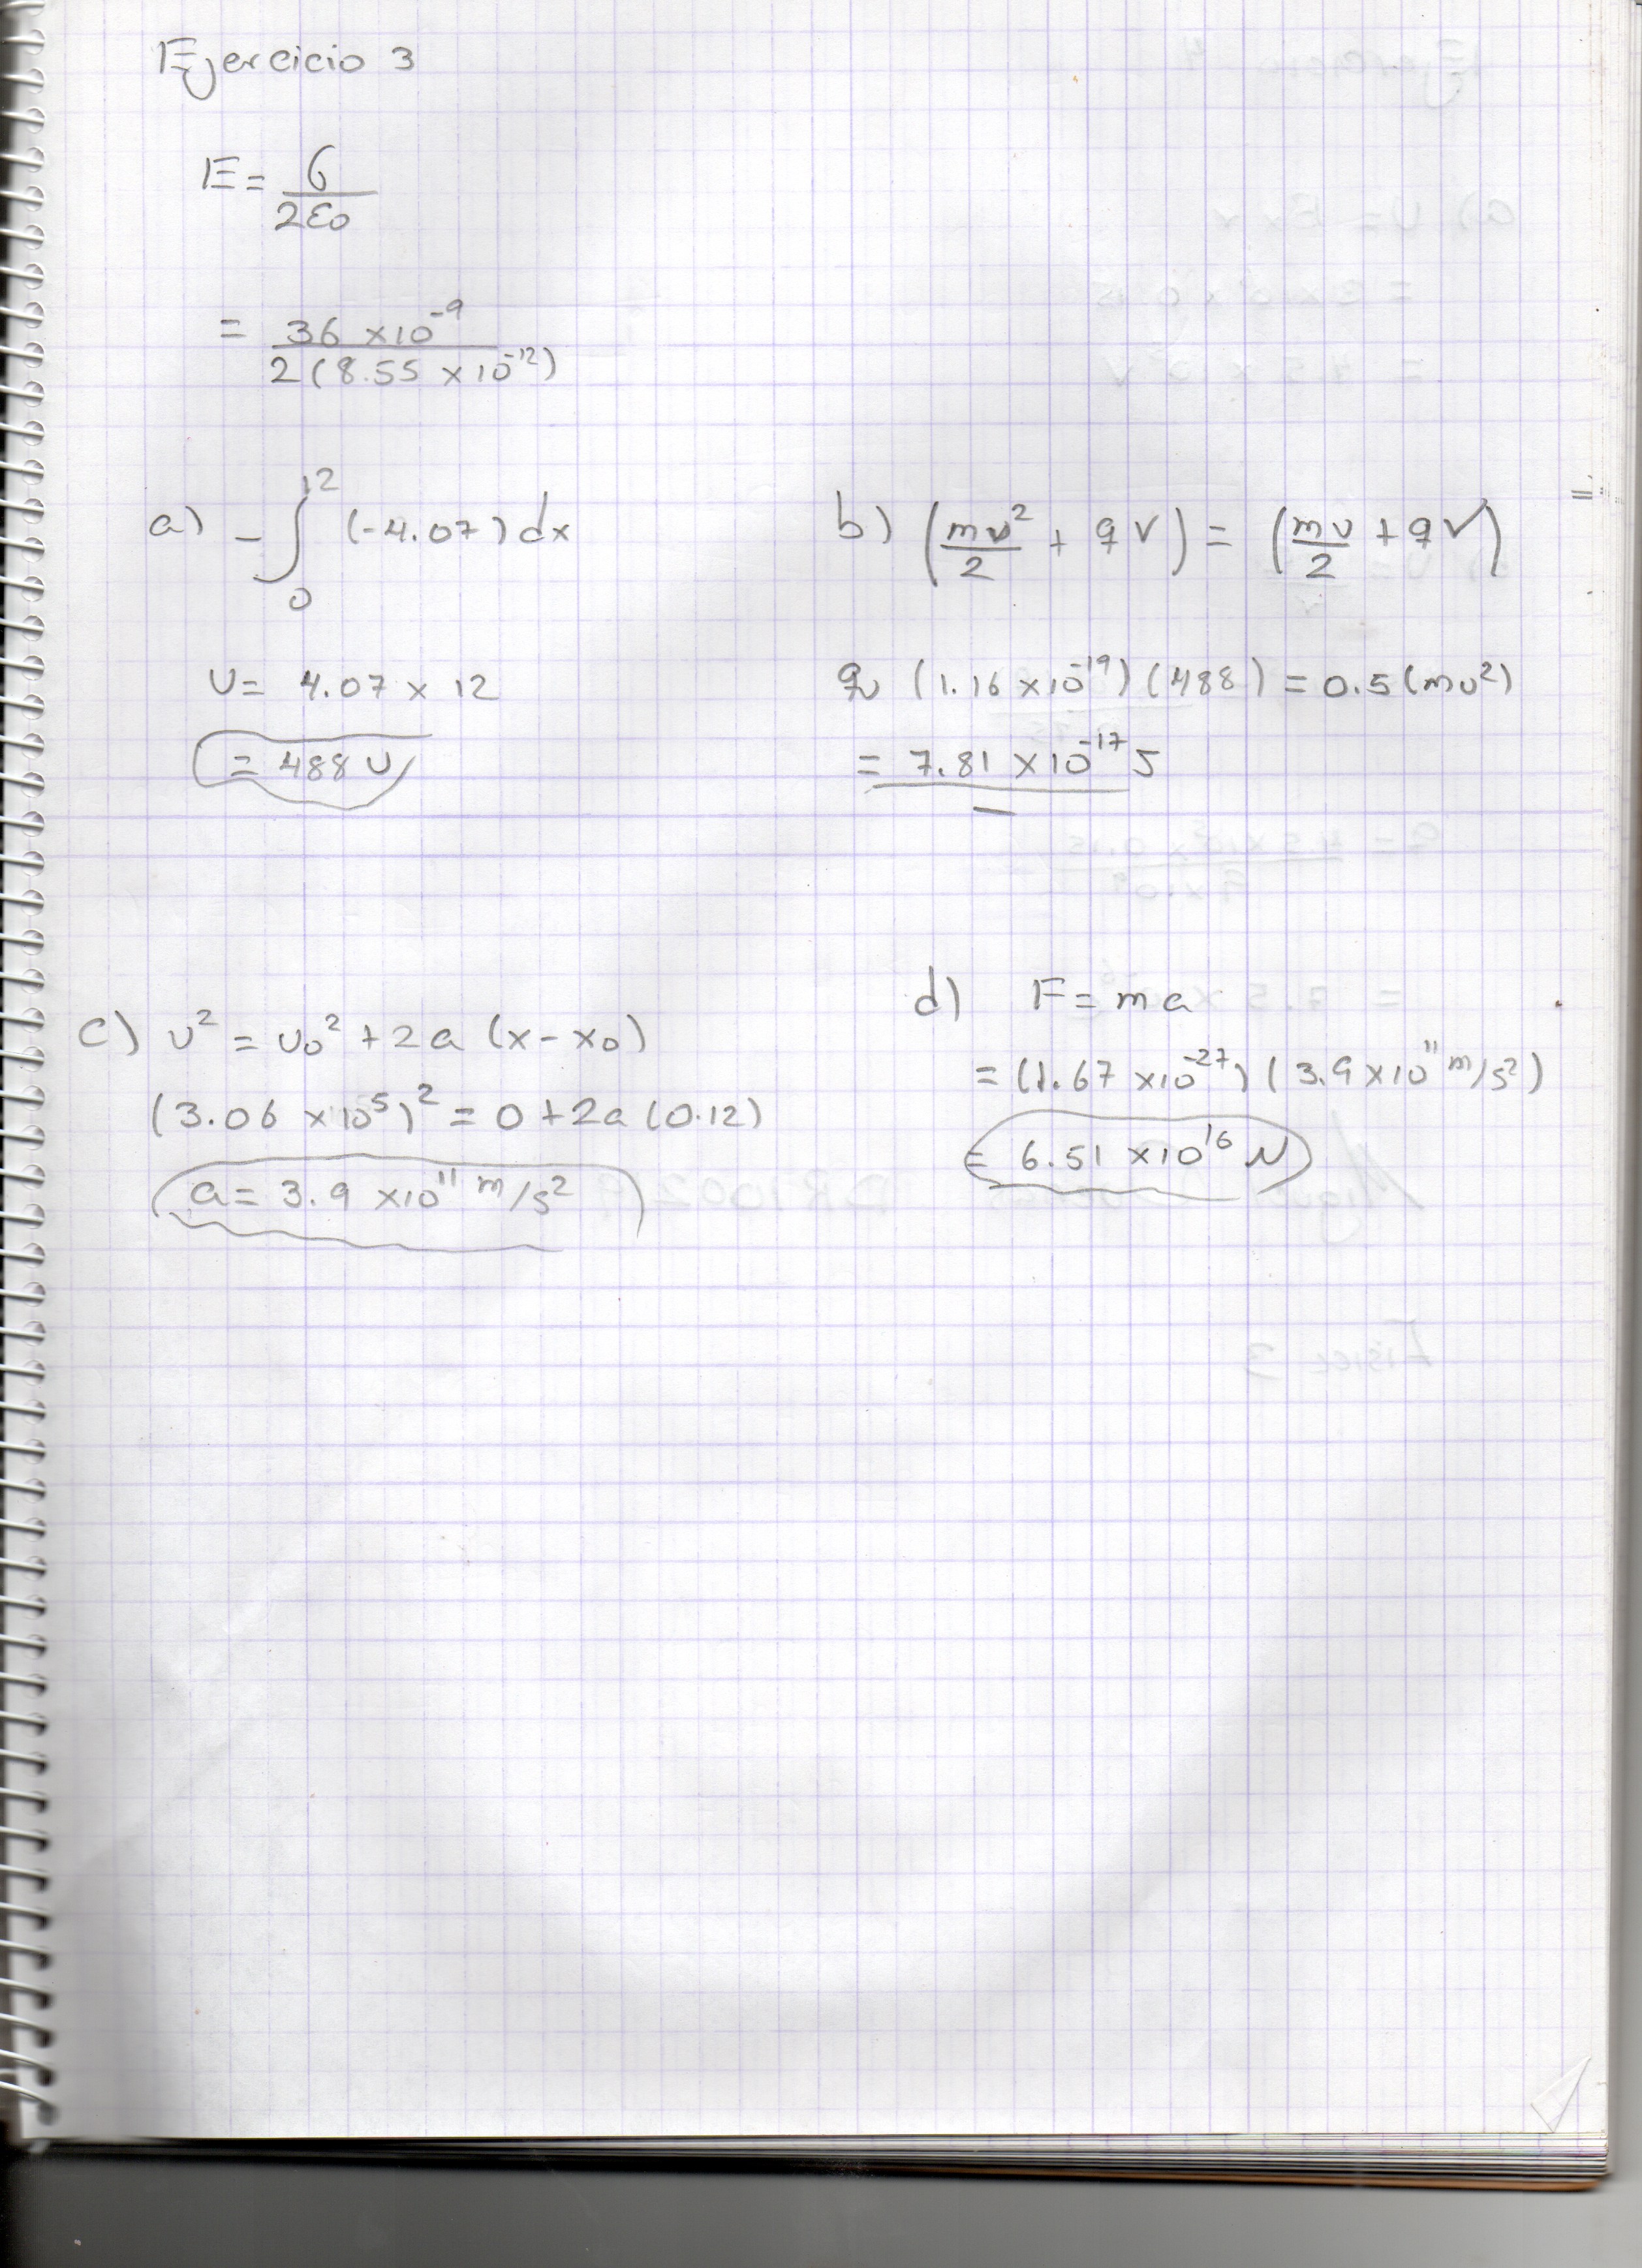 Ejercicio 3
E = σ / 2ε0
= 36 ×10^-9 / 2(8.55 ×10^-12)
a) -∫_0^12 (-4.07) dx
U = 4.07 × 12
= 488 U
b) (mv²/2 + qV) = (mv/2 + qV)
q (1.16 ×10^-19) (488) = 0.5 (mv²)
= 7.81 ×10^-17 J
c) v² = v0² + 2a (x - x0)
(3.06 ×10^5)² = 0 + 2a (0.12)
a = 3.9 ×10^11 m/s²
d) F = ma
= (1.67 ×10^-27) (3.9 ×10^11 m/s²)
= 6.51 ×10^16 N